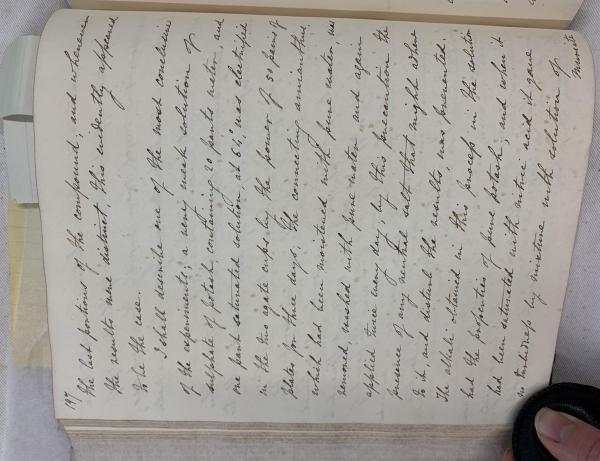 197
the last portions of the compound; and whenever
the results were distinct, this evidently appeared
to be the case.
I shall describe one of the most conclusive
of the experiments; a very weak solution of
sulphate of potash containing 20 parts water, and
one part saturated solution, at 64°, was electrified
in the two agate cups by the power of 50 pairs of
plates for three days; the connecting amianthus,
which had been moistened with pure water, was
removed, washed with pure water and again
applied twice every day; by this precaution the
presence of any neutral salt that might adhere
to it, and disturb the results, was prevented.
The alkali obtained in this process in the solution
had the properties of pure potash; and when it
had been saturated with nitric acid it gave
no turbidness by mixture with solution of
muriate